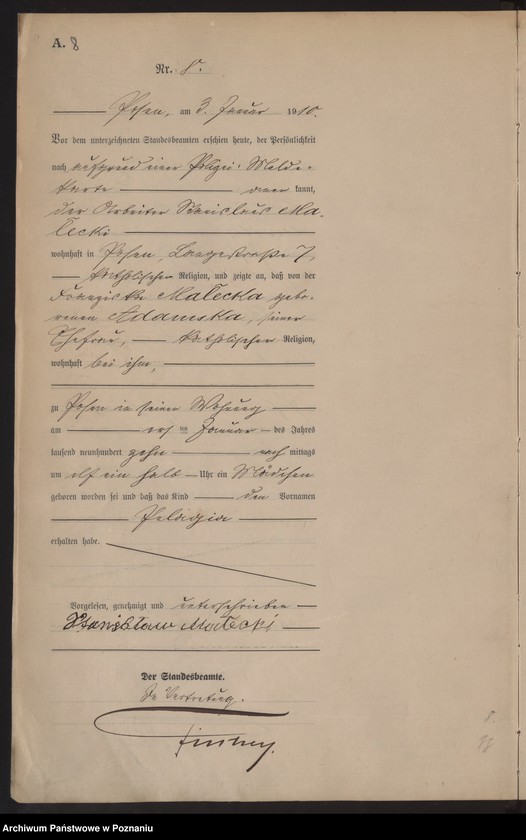 A. 8
Nr. 8.
Posen, am 3. Januar 1910.
Vor dem unterzeichneten Standesbeamten erschien heute, der Persönlichkeit
nach auf Grund einer Polizei-Melde-
karte anerkannt,
der Arbeiter Stanislaus Ma-
łecki
wohnhaft in Posen, Langestraße 7,
katholischer Religion, und zeigte an, daß von der
Franziska Małecka gebo-
renen Adamska, seiner
Ehefrau, katholischer Religion,
wohnhaft bei ihm,
zu Posen in seiner Wohnung
am ersten Januar des Jahres
tausend neunhundert zehn nach mittags
um elf ein halb Uhr ein Mädchen
geboren worden sei und daß das Kind den Vornamen
Pelagia
erhalten habe.
Vorgelesen, genehmigt und unterschrieben
Stanisław Małecki
Der Standesbeamte.
In Vertretung.
Archiwum Państwowe w Poznaniu